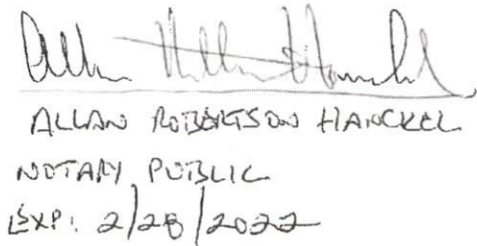 ALLAN ROBERTSON HANCKEL
NOTARY PUBLIC
EXP: 2/28/2022